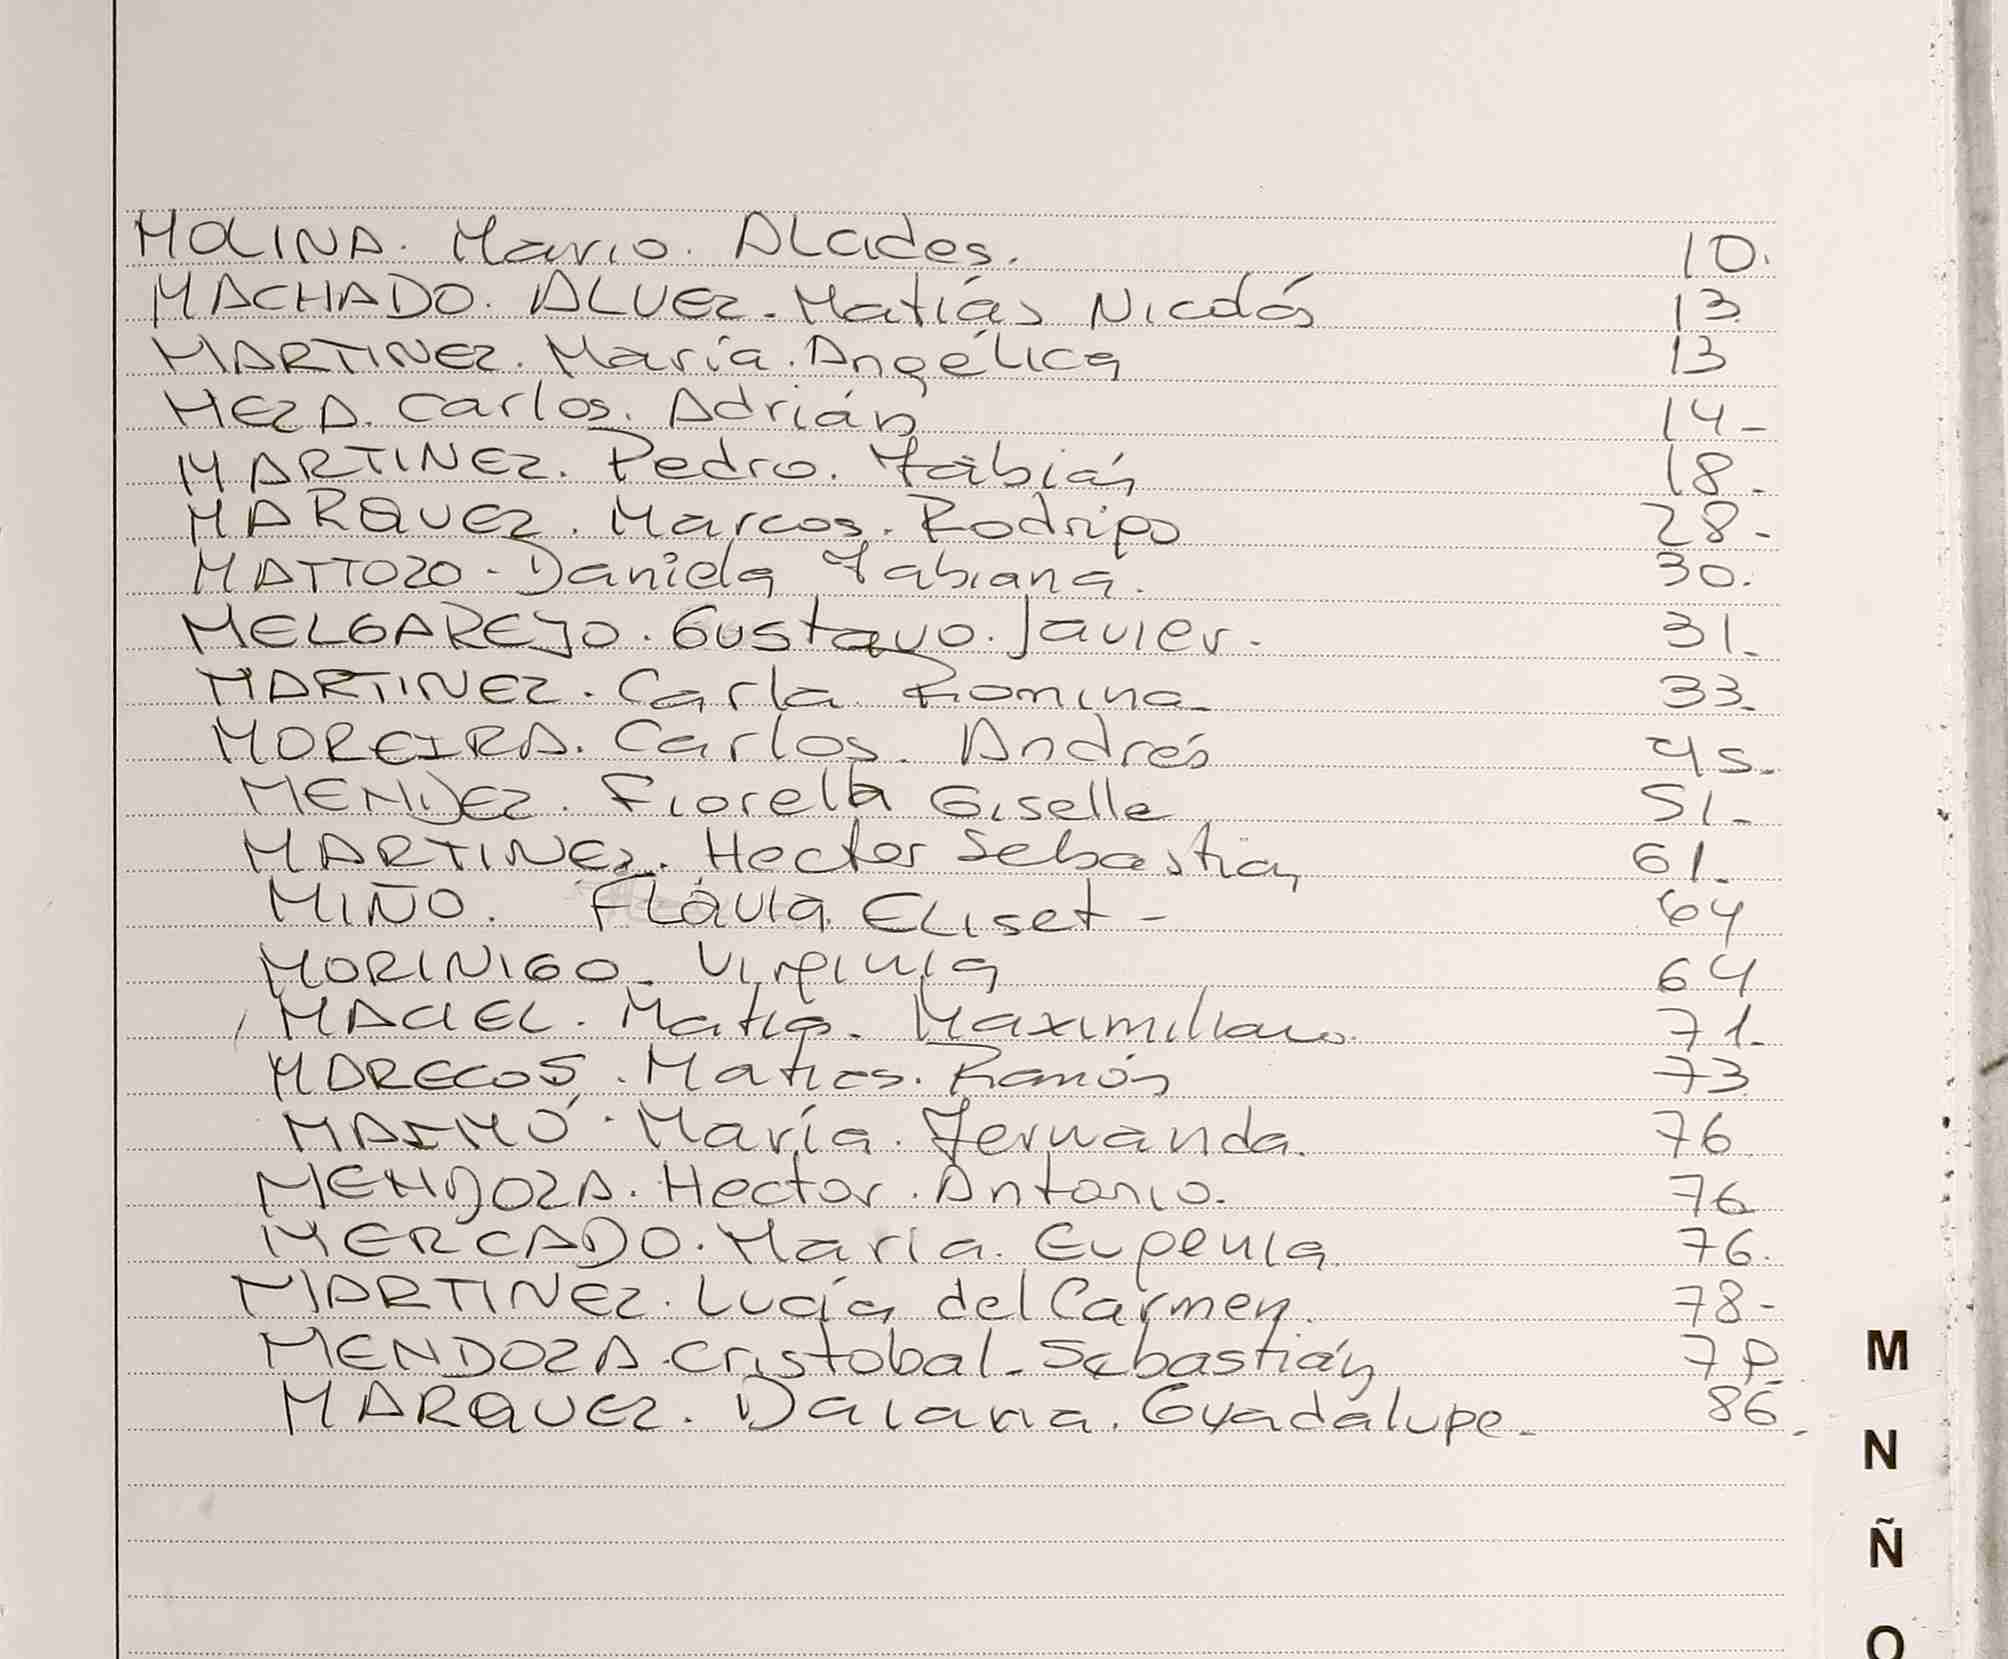 MOLINA. Mario. Alcides. 10.
MACHADO. ALVEZ. Matías Nicolás 13.
MARTINEZ. María. Angélica 13
MEZA. Carlos. Adrián 14-
MARTINEZ. Pedro. Fabián 18.
MARQUEZ. Marcos. Rodrigo 28-
MATTOZO- Daniela Fabiana. 30.
MELGAREJO. Gustavo. Javier. 31.
MARTINEZ. Carla Romina. 33.
MOREIRA. Carlos. Andrés 45.
MENDEZ. Fiorella Giselle 51-
MARTINEZ. Hector Sebastian 61.
MIÑO. Flávia ELiset - 64
MORINIGO. Virginia 64
MACIEL. Matias. Maximiliano. 71.
MARECOS. Matias. Ramón 73
MAIMÓ. María. Fernanda. 76.
MENDOZA. Hector. Antonio. 76
MERCADO. Maria. Eugenia. 76.
MARTINEZ. Lucía del Carmen. 78-
MENDOZA. Cristobal. Sebastián
MARQUEZ. Daiana. Guadalupe. 86.
M
N
Ñ
O